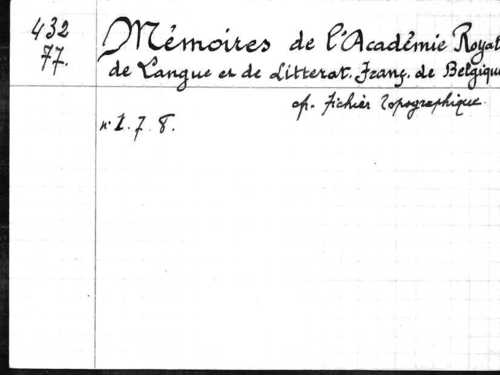 432
77.
Mémoires de l'Académie Royal
de Langue et de Litterat. Franç. de Belgique
cf. fichier topographique.
n° 1. 7. 8.